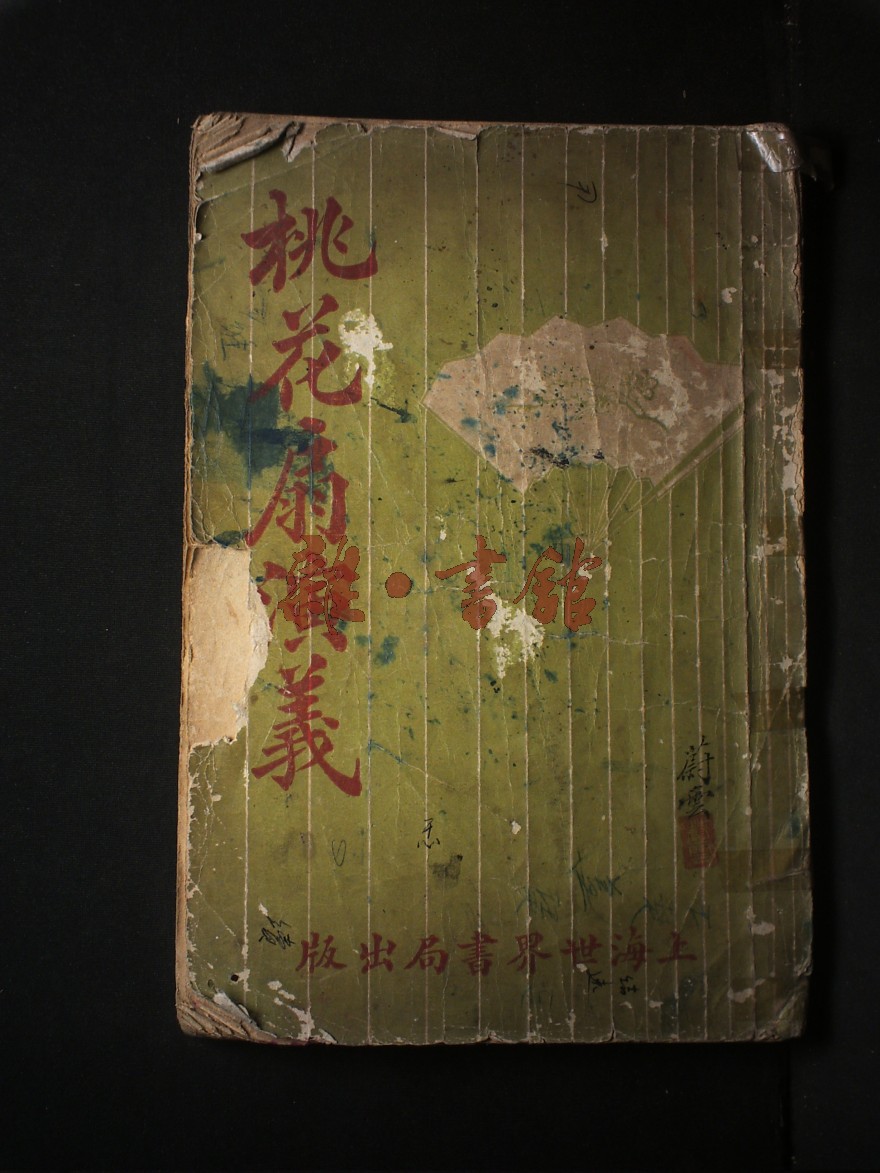 桃花扇演義
上海世界書局出版
蔚雲
雜·書館